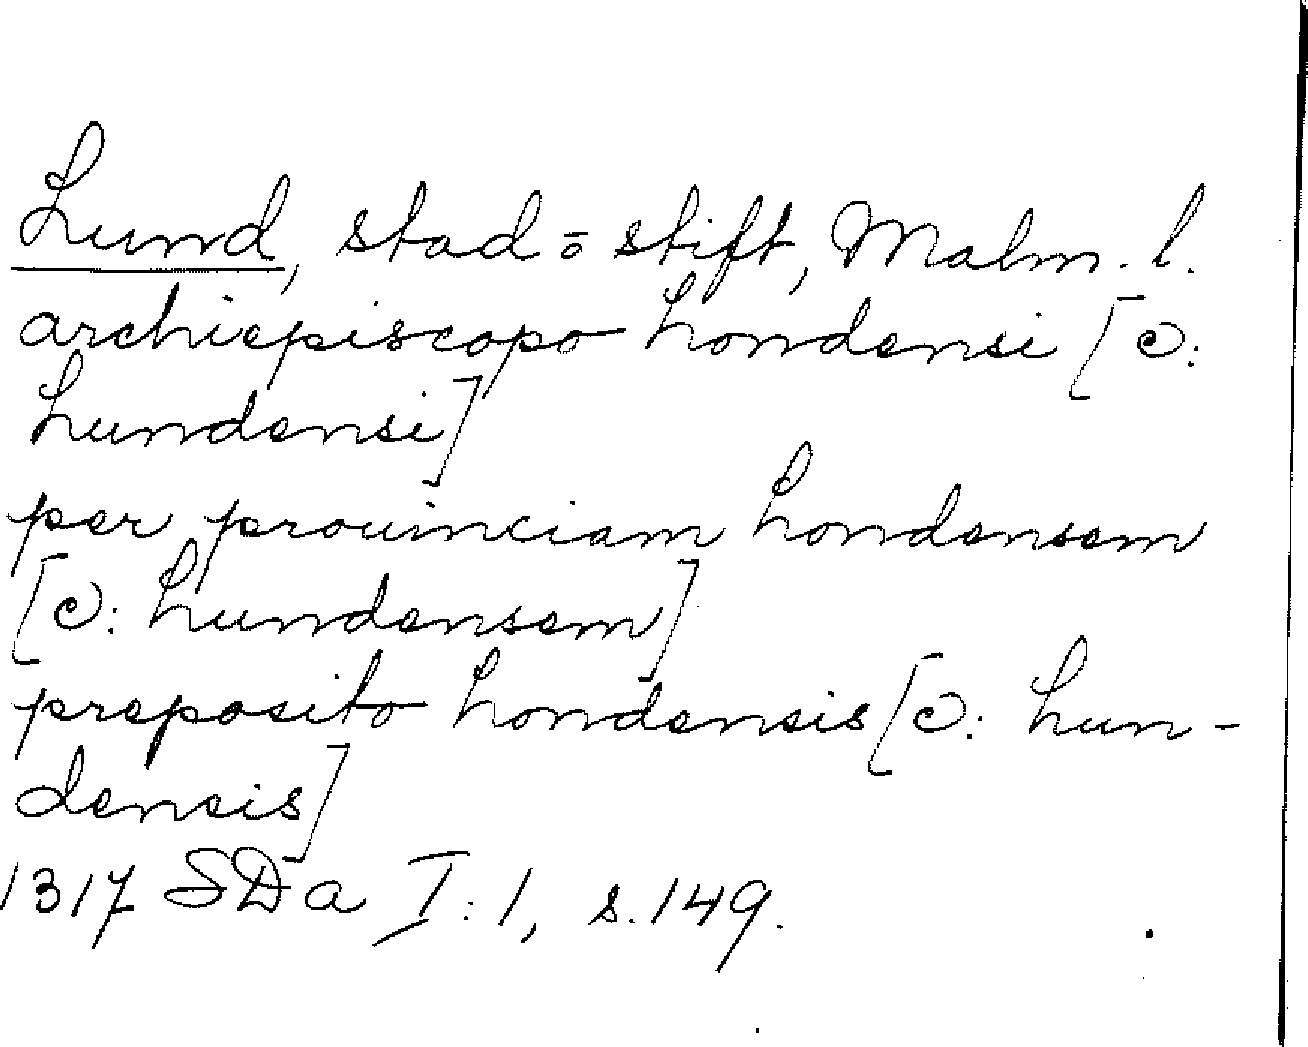 Lund, stad o stift, Malm. l.
archiepiscopo Londensi [ɔ:
Lundensi]
per prouinciam Londensem
[ɔ: Lundensem]
preposito Londensis [ɔ: Lun-
densis]
1317 SDa I:1, s. 149.